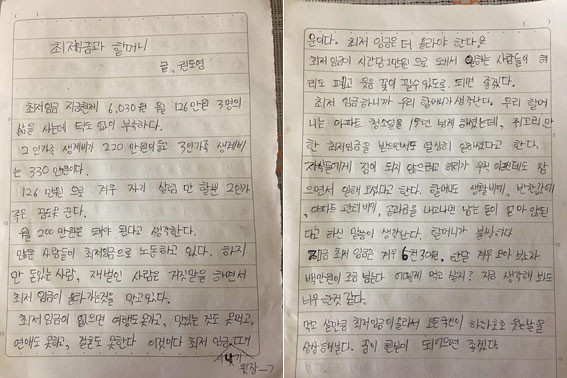 최저임금과 할머니
글, 권도영
최저임금 시급현재 6,030원 월 126만원 3명의
삶을 사는데 턱도 없이 부족하다.
2인가족 생계비가 220만원이고 3인가족 생계비
는 330만원이다.
126만원으로 겨우 자기 살림만 할뿐 2인가
족은 꿈도못 꾼다.
월 200만원은 돼야 된다고 생각한다.
많은 사람들이 최저임금으로 노동하고 있다. 하지
만 돈있는사람, 재벌인 사람은 거짓말을 하면서
최저 임금이 올라가는것을 막고있다.
최저임금이 없으면 여행도못가고, 맛있는 것도 못먹고,
연애도못하고, 결혼도 못한다 이것이다 최저 임금
뒷장→
문이다. 최저 임금은 더 올라야 한다.
최저 임금이 시간당 1만원으로 돼서 일하는 사람들의 허
리도 펴고 웃음 꽃이 필수 있도록 되면 좋겠다.
최저 임금하니까 우리 할머니가 생각난다. 우리 할머
니는 아파트 청소일을 15년 넘게 하셨는데, 쥐꼬리만
한 최저임금을 받으면서도 열심히 일하셨다고 한다.
자식들에게 짐이 되지 않으려고 허리가 아파도 참
으면서 일해 오셨다고 한다. 할머니도 생활비,
아파트 관리비, 공과금을 내고나면 남는 돈이 얼마 안된
다고 하신 말씀이 생각난다. 할머니가 불쌍하다
지금 최저 임금은 겨우 6천30원, 한달 겨우 모아 봤자
백만원이 조금 넘는다 어떻게 먹고 살지? 지금 생각해 봐도
너무 한것 같다.
먹고 살만큼 최저임금이 올라서 모든 국민이 하하호호 웃는날을
상상해봤다. 꿈이 현실이 되었으면 좋겠다